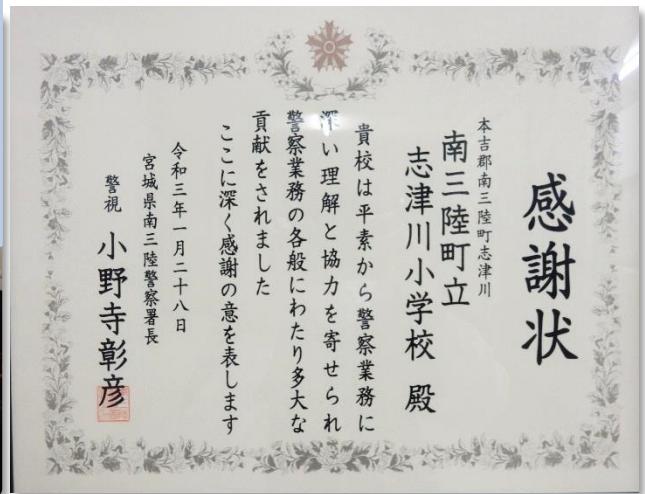 感謝状
本吉郡南三陸町志津川
南三陸町立
志津川小学校 殿
貴校は平素から警察業務に
深い理解と協力を寄せられ
警察業務の各般にわたり多大な
貢献をされました
ここに深く感謝の意を表します
令和三年一月二十八日
宮城県南三陸警察署長
警視 小野寺彰彦